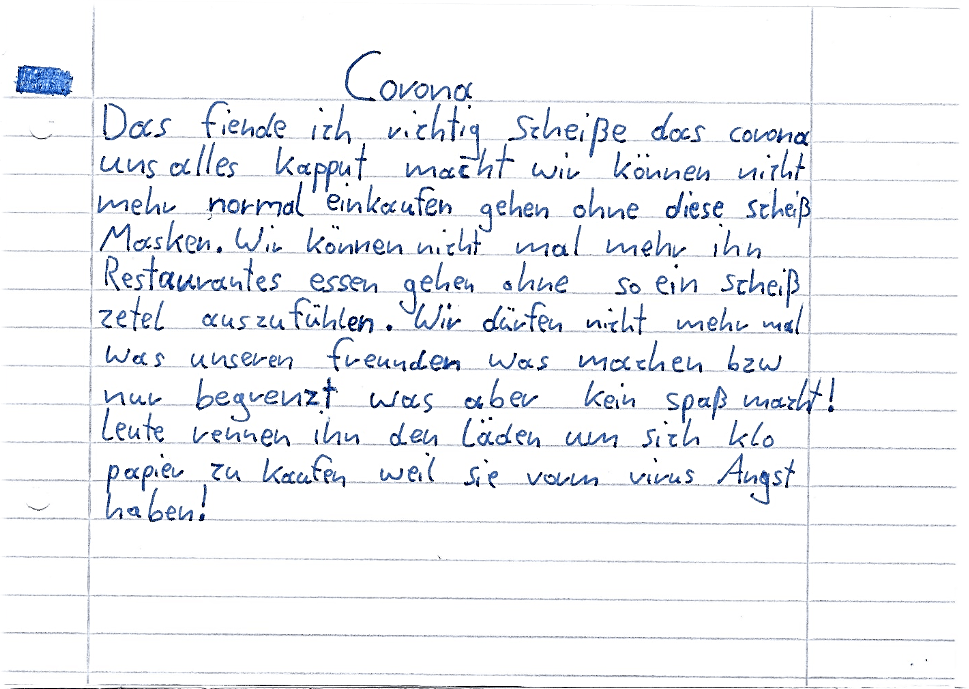 Corona
Das fiende ich richtig Scheiße das corona
uns alles kapput macht wir können nicht
mehr normal einkaufen gehen ohne diese scheiß
Masken. Wir können nicht mal mehr ihn
Restaurantes essen gehen ohne so ein scheiß
zetel auszufühlen. Wir dürfen nicht mehr mal
was unseren freunden was machen bzw
nur begrenzt was aber kein spaß macht!
Leute rennen ihn den Läden um sich klo
papier zu kaufen weil sie vorm virus Angst
haben!